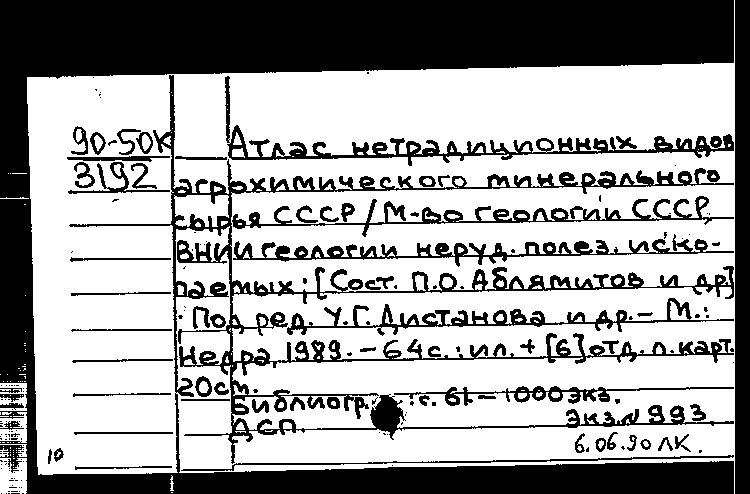 90-50К Атлас нетрадиционных видов
3192 агрохимического минерального
сырья СССР / М-во геологии СССР,
ВНИИ геологии неруд. полез. иско-
паемых; [Сост. П.О. Аблямитов и др.]
; Под ред. У.Г. Дистанова и др. – М.:
Недра, 1989. – 64 с.: ил. + [6] отд. л. карт.
20 см.
Библиогр.: с. 61 – 1000 экз.
ДСП. Экз. № 993.
10 6.06.90 ЛК.